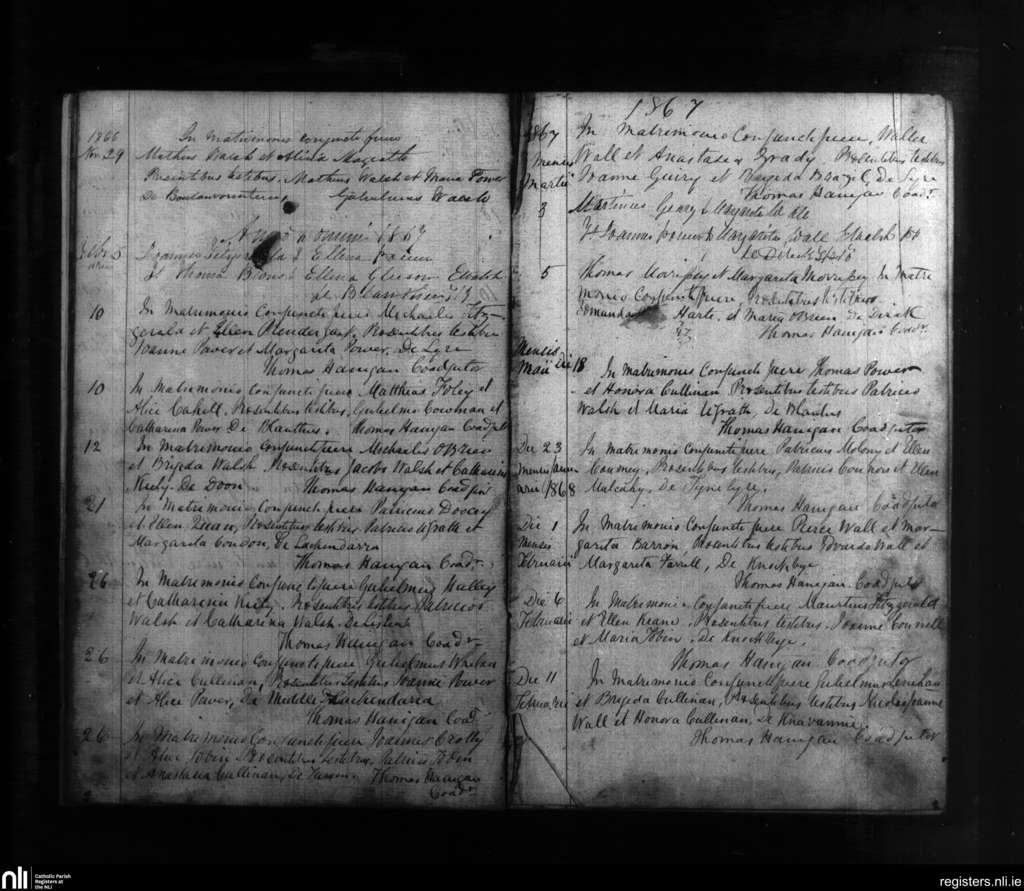 1866
Nov 29
In matrimonio conjuncti fuere
Mathias Walsh et Alicia Magrath
Presentibus testibus. Mathias Walsh et Maria Power
De
Anno Domini 1867
Joannes & Ellena Power
Thoma & Ellena Gleeson
de
10
In Matrimonio Conjuncti fuere Michaelis Fitz-
gerald et Ellen Prendergast, Presentibus testibus
Joanne Power et Margarita Power, De Lyre
Thomas Hanigan Coadjutor
10
In Matrimonio Conjuncti fuere Matthias Foley et
Alice Cahill, Presentibus testibus, Gulielmo Cowman et
Catharina Power De Thomas Hanigan Coadjutr
12
In Matrimonio Conjuncti fuere Michaelis OBrien
et Brigeda Walsh Presentibus Jacobo Walsh et Catharina
Kiely. De Doon. Thomas Hanigan Coadjutr
21
In Matrimonio Conjuncti fuere Patricius
et Ellen Presentibus testibus Patricio McGrath et
Margarita Condon, De Lackendarra
Thomas Hanigan Coadr.
26
In Matrimonio Conjuncti fuere Gulielmus
et Catharina Kiely. Presentibus testibus Patricios
Walsh et Catharina Walsh.
Thomas Hanigan Coadr
26
In Matrimonio Conjuncti fuere Gulielmus Whelan
et Alice Cullinan, Presentibus testibus Joanne Power
et Alice Power, De Middle Lackendarra
Thomas Hanigan Coad
26
In Matrimonio Conjuncti fuere Joannes Crotty
et Alice Tobin Presentibus testibus, Tobin
et Anastasia Cullinan, De Thomas Hanigan
Coadr
1867
1867
mensis
Martii
In Matrimonio Conjuncti fuere, Walter
Wall et Anastasia Grady. Presentibus testibus
Joanne Guiry et Brigeda Brazil, De Lyre
Thomas Hanigan Coadr.
3
Martinus Geary & Margarita
Joannes Power & Margarita Wall
5
Thomas Morrissey et Margarita Morrissey In Matri
monio Conjuncti fuere, Presentibus testibus
Harte. et Maria OBrien De
Thomas Hanigan Coadr.
Mensis
Maii Die 18
In Matrimonio Conjuncti fuere Thomas Power
et Honora Cullinan Presentibus testibus Patricio
Walsh et Maria McGrath, De
Thomas Hanigan Coadjutor
Die 23
mensis
1868
In Matrimonio Conjuncti fuere Patricius Molony et Ellen
Presentibus testibus, Patricio Connors et Ellen
Mulcahy. De
Thomas Hanigan Coadjutor
Die 1
mensis
Februarii
In Matrimonio Conjuncti fuere Pierce Wall et Mar-
garita Barron, Presentibus testibus Edvardo Wall et
Margarita Farrell, De Knockbye
Thomas Hanigan Coadjutor
Die 6
Februarii
In Matrimonio Conjuncti fuere Mauritius Fitzgerald
et Ellen Keane, Presentibus testibus. Joanne Connell
et Maria Tobin. De Knockbye.
Thomas Hanigan Coadjutor
Die 11
Februarii
In Matrimonio Conjuncti fuere Gulielmus Lenihan
et Brigeda Cullinan, Presentibus testibus Nicolas Joanne
Wall et Honora Cullinan, De Knavannie
Thomas Hanigan Coadjutor
nli
Catholic Parish
Registers at
the NLI
registers.nli.ie